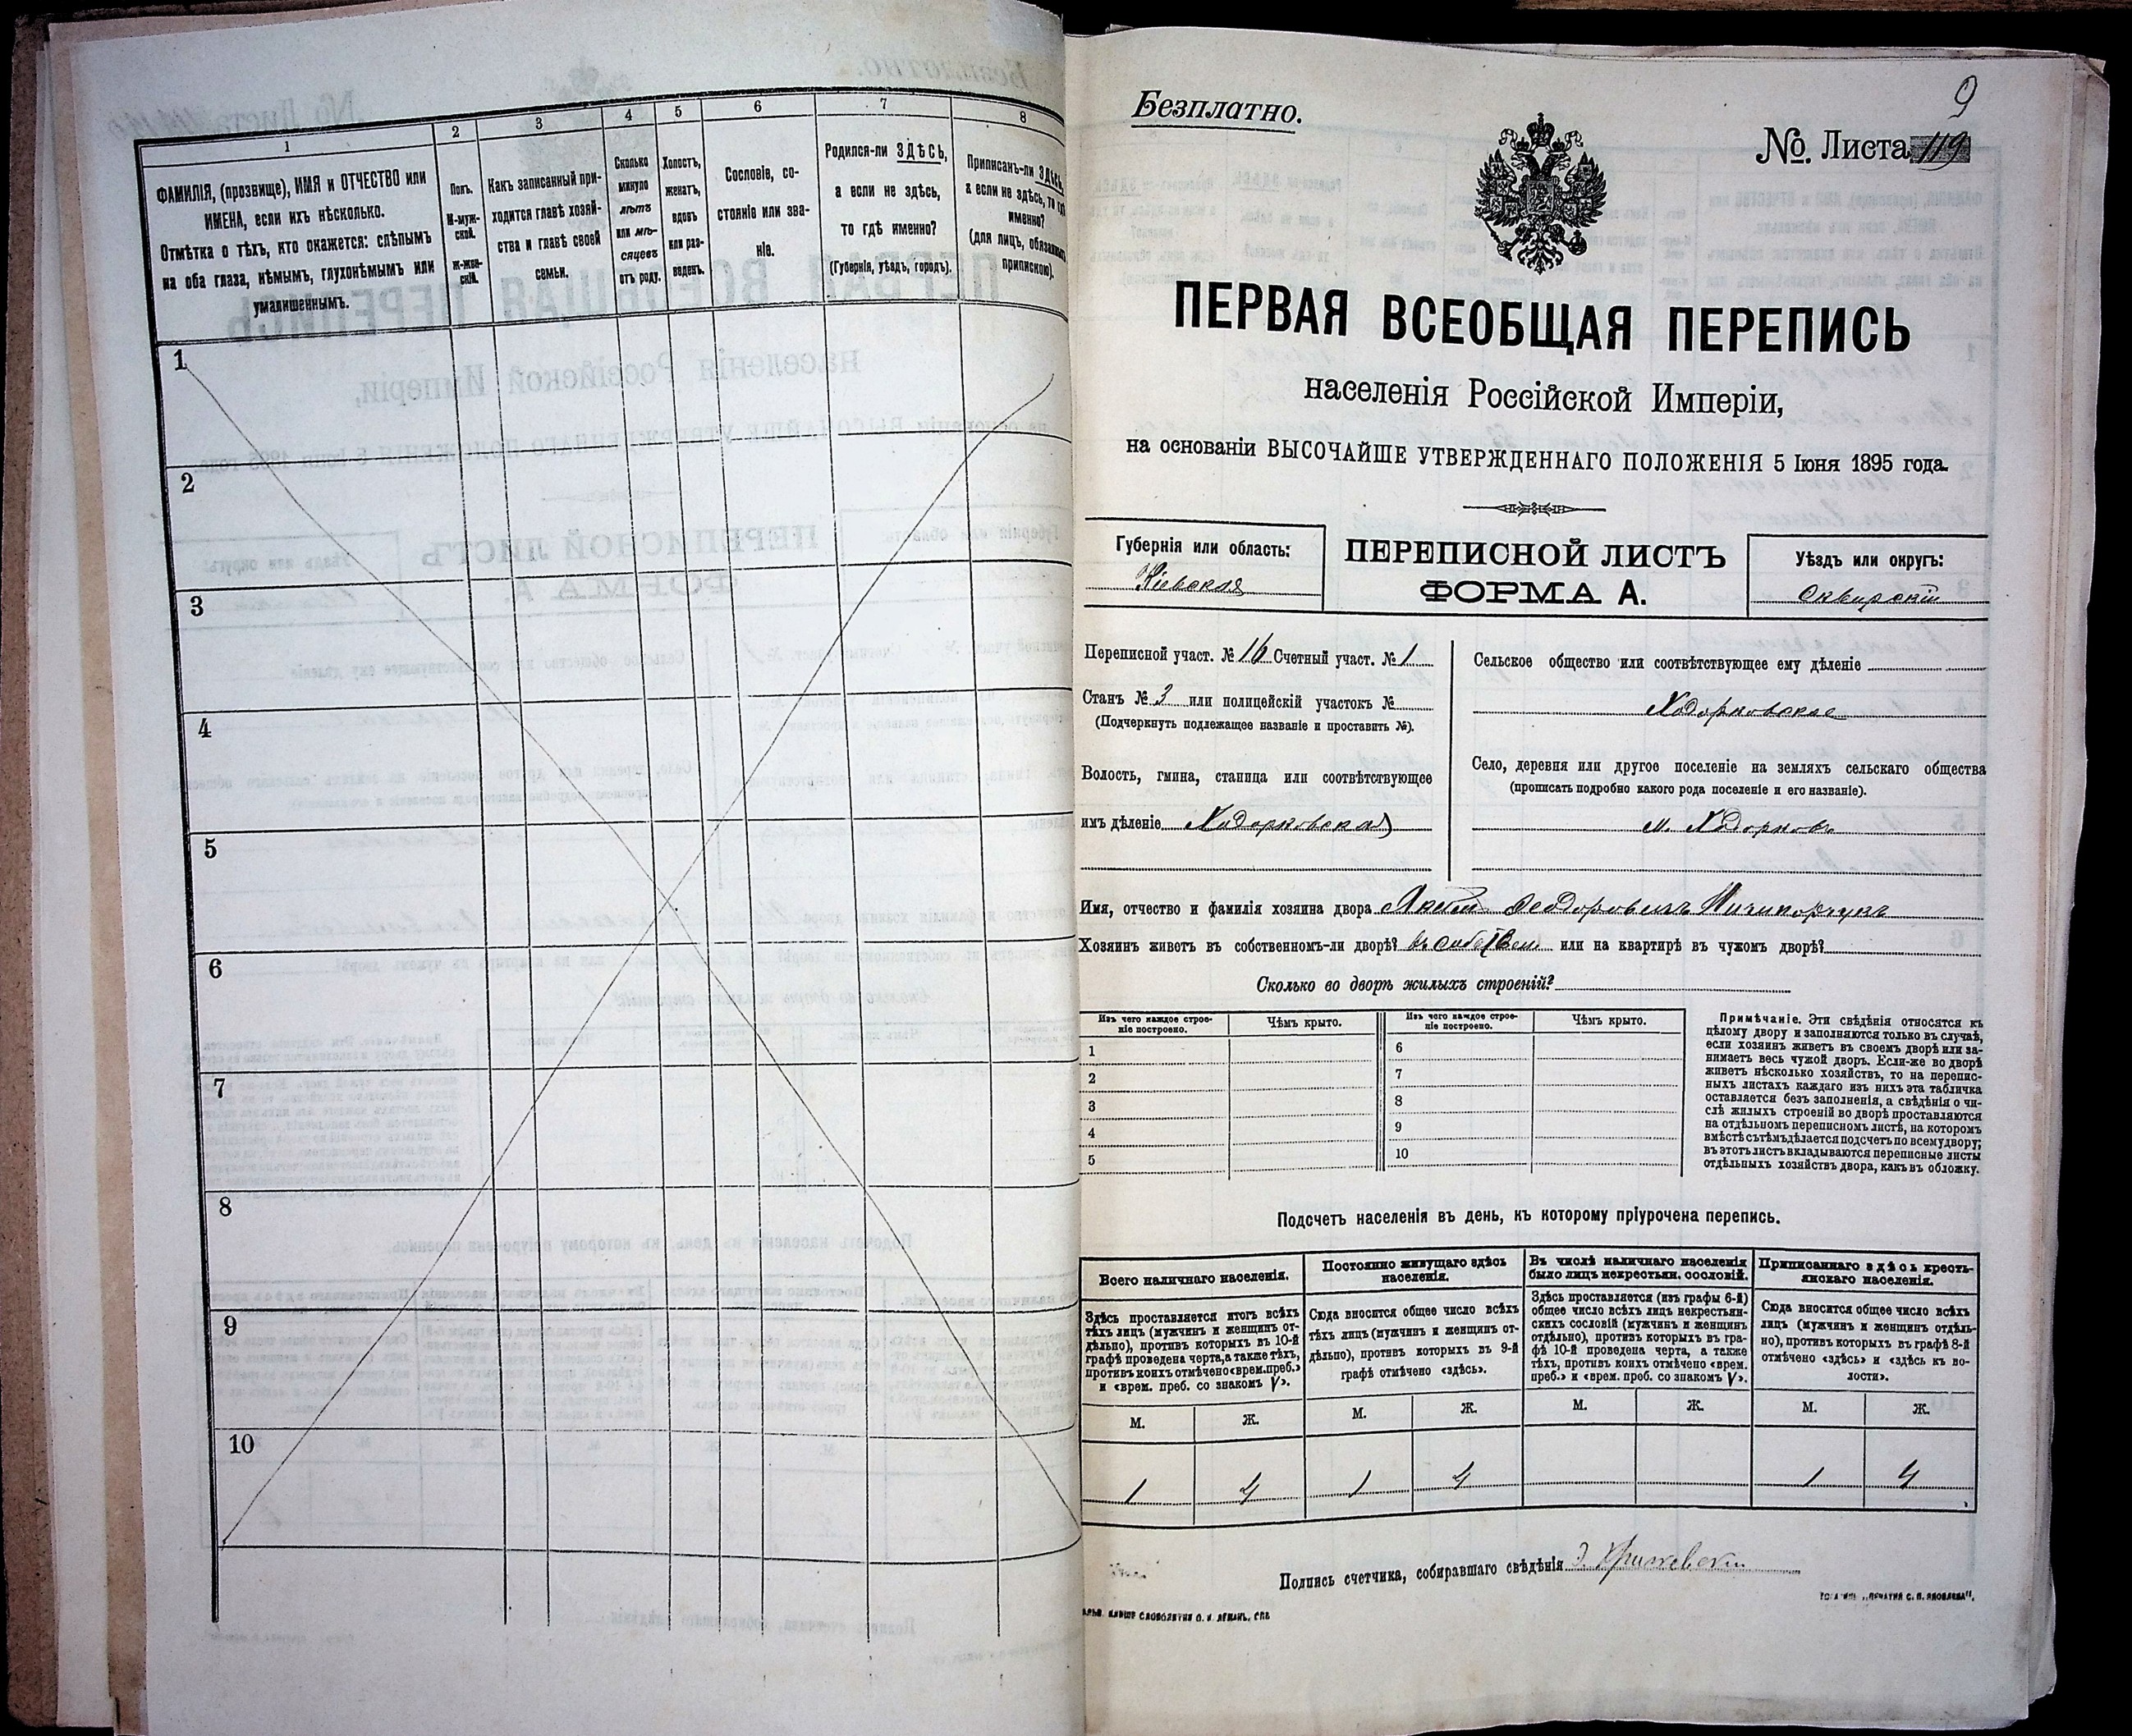 1
2
3
4
5
6
7
8
ФАМИЛІЯ, (прозвище), ИМЯ и ОТЧЕСТВО или
ИМЕНА, если ихъ нѣсколько.
Отмѣтка о тѣхъ, кто окажется: слѣпымъ
на оба глаза, нѣмымъ, глухонѣмымъ или
умалишеннымъ.
Полъ.
М-муж-
ской.
Ж-жен-
скій.
Какъ записанный при-
ходится главѣ хозяй-
ства и главѣ своей
семьи.
Сколько
минуло
лѣтъ
или мѣ-
сяцевъ
отъ роду.
Холостъ,
женатъ,
вдовъ
или раз-
веденъ.
Сословіе, со-
стояніе или зва-
ніе.
Родился-ли ЗДѢСЬ,
а если не здѣсь,
то гдѣ именно?
(Губернія, уѣздъ, городъ).
Приписанъ-ли ЗДѢСЬ,
а если не здѣсь, то гдѣ
именно?
(для лицъ, обязанныхъ
припискою).
1
2
3
4
5
6
7
8
9
10
9
Безплатно.
№. Листа 119
ПЕРВАЯ ВСЕОБЩАЯ ПЕРЕПИСЬ
населенія Россійской Имперіи,
на основаніи ВЫСОЧАЙШЕ УТВЕРЖДЕННАГО ПОЛОЖЕНІЯ 5 Іюня 1895 года.
Губернія или область:
Кіевская
ПЕРЕПИСНОЙ ЛИСТЪ
ФОРМА А.
Уѣздъ или округъ:
Сквирскій
Переписной участ. № 16 Счетный участ. № 1
Станъ № 3 или полицейскій участокъ №
(Подчеркнуть подлежащее названіе и проставить №).
Волость, гмина, станица или соотвѣтствующее
имъ дѣленіе Ходорковская
Сельское общество или соотвѣтствующее ему дѣленіе
Ходорковское
Село, деревня или другое поселеніе на земляхъ сельскаго общества
(прописать подробно какого рода поселеніе и его названіе).
м. Ходорковъ
Имя, отчество и фамилія хозяина двора Феодоровичъ Ничипорчукъ
Хозяинъ живетъ въ собственномъ-ли дворѣ? въ собствен. или на квартирѣ въ чужомъ дворѣ?
Сколько во дворѣ жилыхъ строеній?
Изъ чего каждое строе-
ніе построено.
Чѣмъ крыто.
Изъ чего каждое строе-
ніе построено.
Чѣмъ крыто.
1
2
3
4
5
6
7
8
9
10
Примѣчаніе. Эти свѣдѣнія относятся къ
цѣлому двору и заполняются только въ случаѣ,
если хозяинъ живетъ въ своемъ дворѣ или за-
нимаетъ весь чужой дворъ. Если-же во дворѣ
живетъ нѣсколько хозяйствъ, то на перепис-
ныхъ листахъ каждаго изъ нихъ эта табличка
оставляется безъ заполненія, а свѣдѣнія о чи-
слѣ жилыхъ строеній во дворѣ проставляются
на отдѣльномъ переписномъ листѣ, на которомъ
вмѣстѣ съ тѣмъ дѣлается подсчетъ по всему двору;
въ этотъ листъ вкладываются переписные листы
отдѣльныхъ хозяйствъ двора, какъ въ обложку.
Подсчетъ населенія въ день, къ которому пріурочена перепись.
Всего наличнаго населенія.
Здѣсь проставляется итогъ всѣхъ
тѣхъ лицъ (мужчинъ и женщинъ от-
дѣльно), противъ которыхъ въ 10-й
графѣ проведена черта, а также тѣхъ,
противъ коихъ отмѣчено «врем. преб.»
и «врем. преб. со знакомъ V».
Постоянно живущаго здѣсь
населенія.
Сюда вносится общее число всѣхъ
тѣхъ лицъ (мужчинъ и женщинъ от-
дѣльно), противъ которыхъ въ 9-й
графѣ отмѣчено «здѣсь».
Въ числѣ наличнаго населенія
было лицъ некрестьян. сословій.
Здѣсь проставляется (изъ графы 6-й)
общее число всѣхъ лицъ некрестьян-
скихъ сословій (мужчинъ и женщинъ
отдѣльно), противъ которыхъ въ гра-
фѣ 10-й проведена черта, а также
тѣхъ, противъ коихъ отмѣчено «врем.
преб.» и «врем. преб. со знакомъ V».
Приписаннаго здѣсь кресть-
янскаго населенія.
Сюда вносится общее число всѣхъ
лицъ (мужчинъ и женщинъ отдѣль-
но), противъ которыхъ въ графѣ 8-й
отмѣчено «здѣсь» и «здѣсь къ во-
лости».
М. Ж. М. Ж. М. Ж. М. Ж.
1 4 1 4 1 4
Подпись счетчика, собиравшаго свѣдѣнія Э. Крижевскій
СЛОВОЛИТНЯ О. И. ЛЕМАНЪ, СПБ
ПЕЧАТНЯ С. П. ЯКОВЛЕВА".